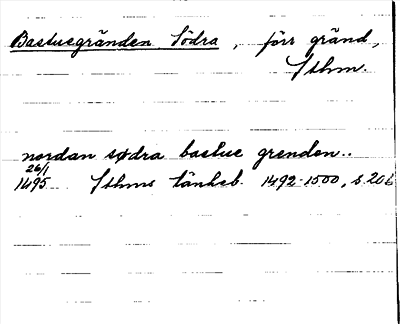 Bastuegränden Södra, förr gränd,
Sthm.
nordan sødra bastue grenden..
26/1
1495 Sthms tänkeb. 1492-1500, s. 206